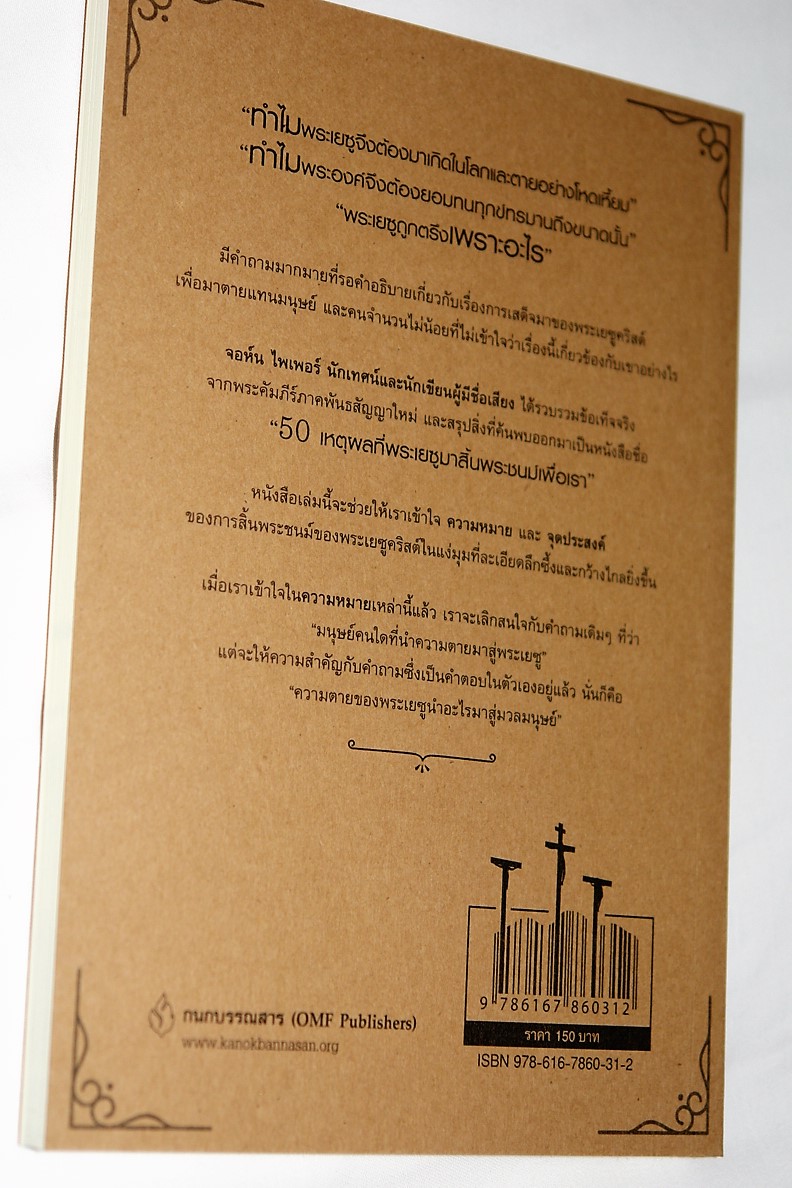 “ทำไมพระเยซูจึงต้องมาเกิดในโลกและตายอย่างโหดเหี้ยม”
“ทำไมพระองค์จึงต้องยอมทนทุกข์ทรมานถึงขนาดนั้น”
“พระเยซูถูกตรึงเพราะอะไร”
มีคำถามมากมายที่รอคำอธิบายเกี่ยวกับเรื่องการเสด็จมาของพระเยซูคริสต์
เพื่อมาตายแทนมนุษย์ และคนจำนวนไม่น้อยที่ไม่เข้าใจว่าเรื่องนี้เกี่ยวข้องกับเขาอย่างไร
จอห์น ไพเพอร์ นักเทศน์และนักเขียนผู้มีชื่อเสียง ได้รวบรวมข้อเท็จจริง
จากพระคัมภีร์ภาคพันธสัญญาใหม่ และสรุปสิ่งที่ค้นพบออกมาเป็นหนังสือชื่อ
“50 เหตุผลที่พระเยซูมาสิ้นพระชนม์เพื่อเรา”
หนังสือเล่มนี้จะช่วยให้เราเข้าใจ ความหมาย และ จุดประสงค์
ของการสิ้นพระชนม์ของพระเยซูคริสต์ในแง่มุมที่ละเอียดลึกซึ้งและกว้างไกลยิ่งขึ้น
เมื่อเราเข้าใจในความหมายเหล่านี้แล้ว เราจะเลิกสนใจกับคำถามเดิมๆ ที่ว่า
“มนุษย์คนใดที่นำความตายมาสู่พระเยซู”
แต่จะให้ความสำคัญกับคำถามซึ่งเป็นคำตอบในตัวเองอยู่แล้ว นั่นก็คือ
“ความตายของพระเยซูนำอะไรมาสู่มวลมนุษย์”
9 786167 860312
ราคา 150 บาท
ISBN 978-616-7860-31-2
กนกบรรณสาร (OMF Publishers)
www.kanokbannasan.org